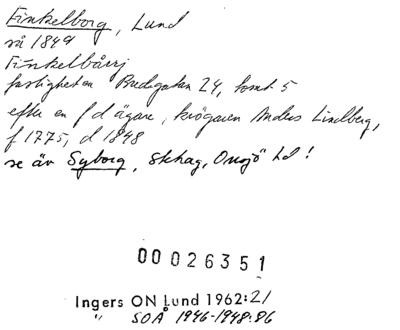 Finkelborg, Lund
så 1849
Finkelbårj
fastigheten Bredgatan 24, tomt 5
efter en f d ägare, krögaren Anders Lindberg,
f 1775, d 1848
se äv Syborg, Skhag, Onsjö hd!
00026351
Ingers ON Lund 1962:21
" SOÅ 1946-1948:86